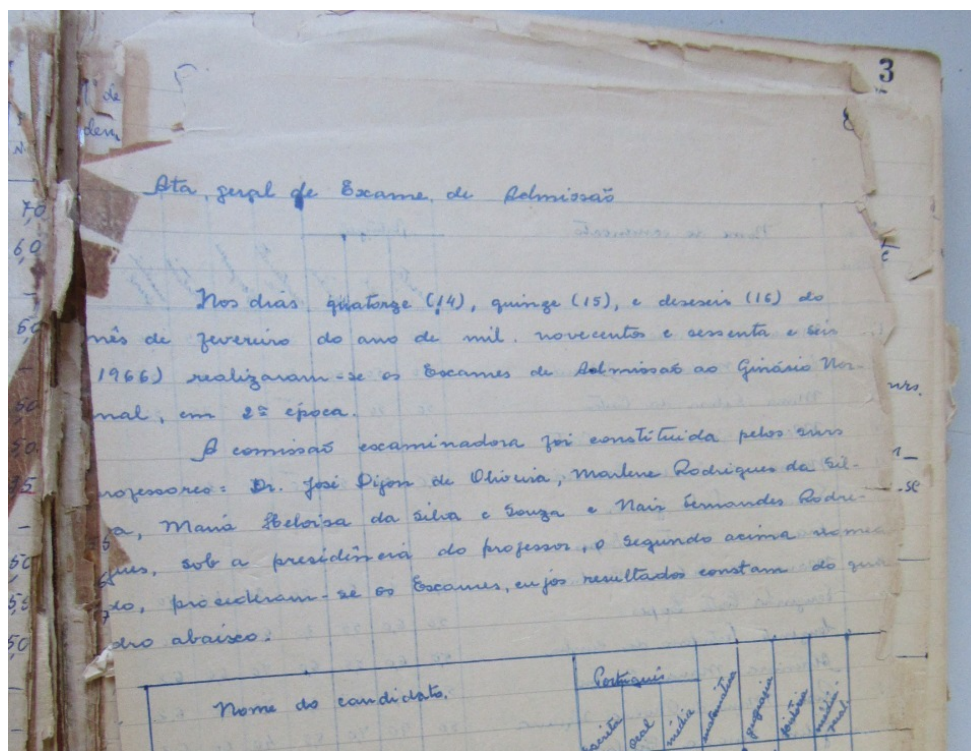 3
nº de
dem
Ata geral de Exame de Admissão
7,0
6,0
Nos dias quatorze (14), quinze (15), e deseseis (16) do
mês de fevereiro do ano de mil novecentos e sessenta e seis
1966) realizaram-se os Exames de Admissão ao Ginásio Nor-
mal, em 2ª época.
A comissão examinadora foi constituida pelos snrs
rofessores: Dr. José Dijon de Oliveira, Marlene Rodrigues da Sil-
va, Maria Heloisa da Silva e Souza e Nair Fernandes Rodri-
gues, sob a presidência do professor, o segundo acima nomea
do, procederam-se os Exames, cujos resultados constam do qua
dro abaixo:
Nome do candidato.
Português
escrita
oral
média
matemática
geografia
história